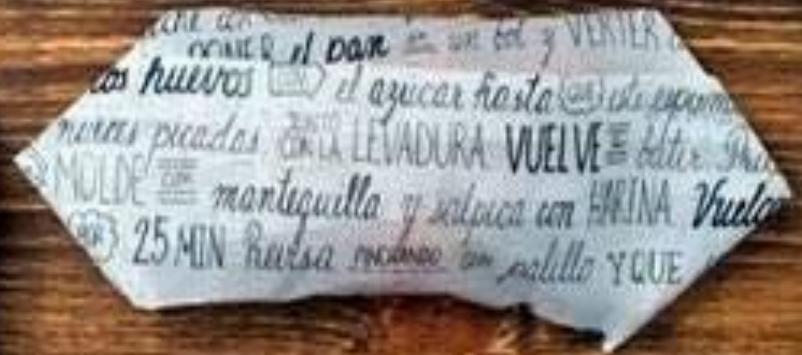 PONER el pan en un bol y VERTER
los huevos CON el azucar hasta QUE este espum
nueces picadas JUNTO CON LA LEVADURA VUELVE A batir
MOLDE CON mantequilla y salpica con HARINA Vuelca
POR 25 MIN hasta un palillo Y QUE